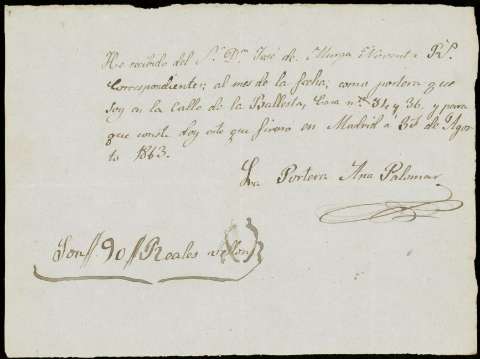 He recibido del Sr. Dn. José de Murga Noventa Rs.
Correspondiente; al mes de la fecha; como portera que
soy en la Calle de la Ballesta, Casa ns. 34 y 36. y para
que conste doy este que firmo en Madrid a 31 de Agos
to 1863.
La Portera Ana Palomar
Son 90 Reales vellon